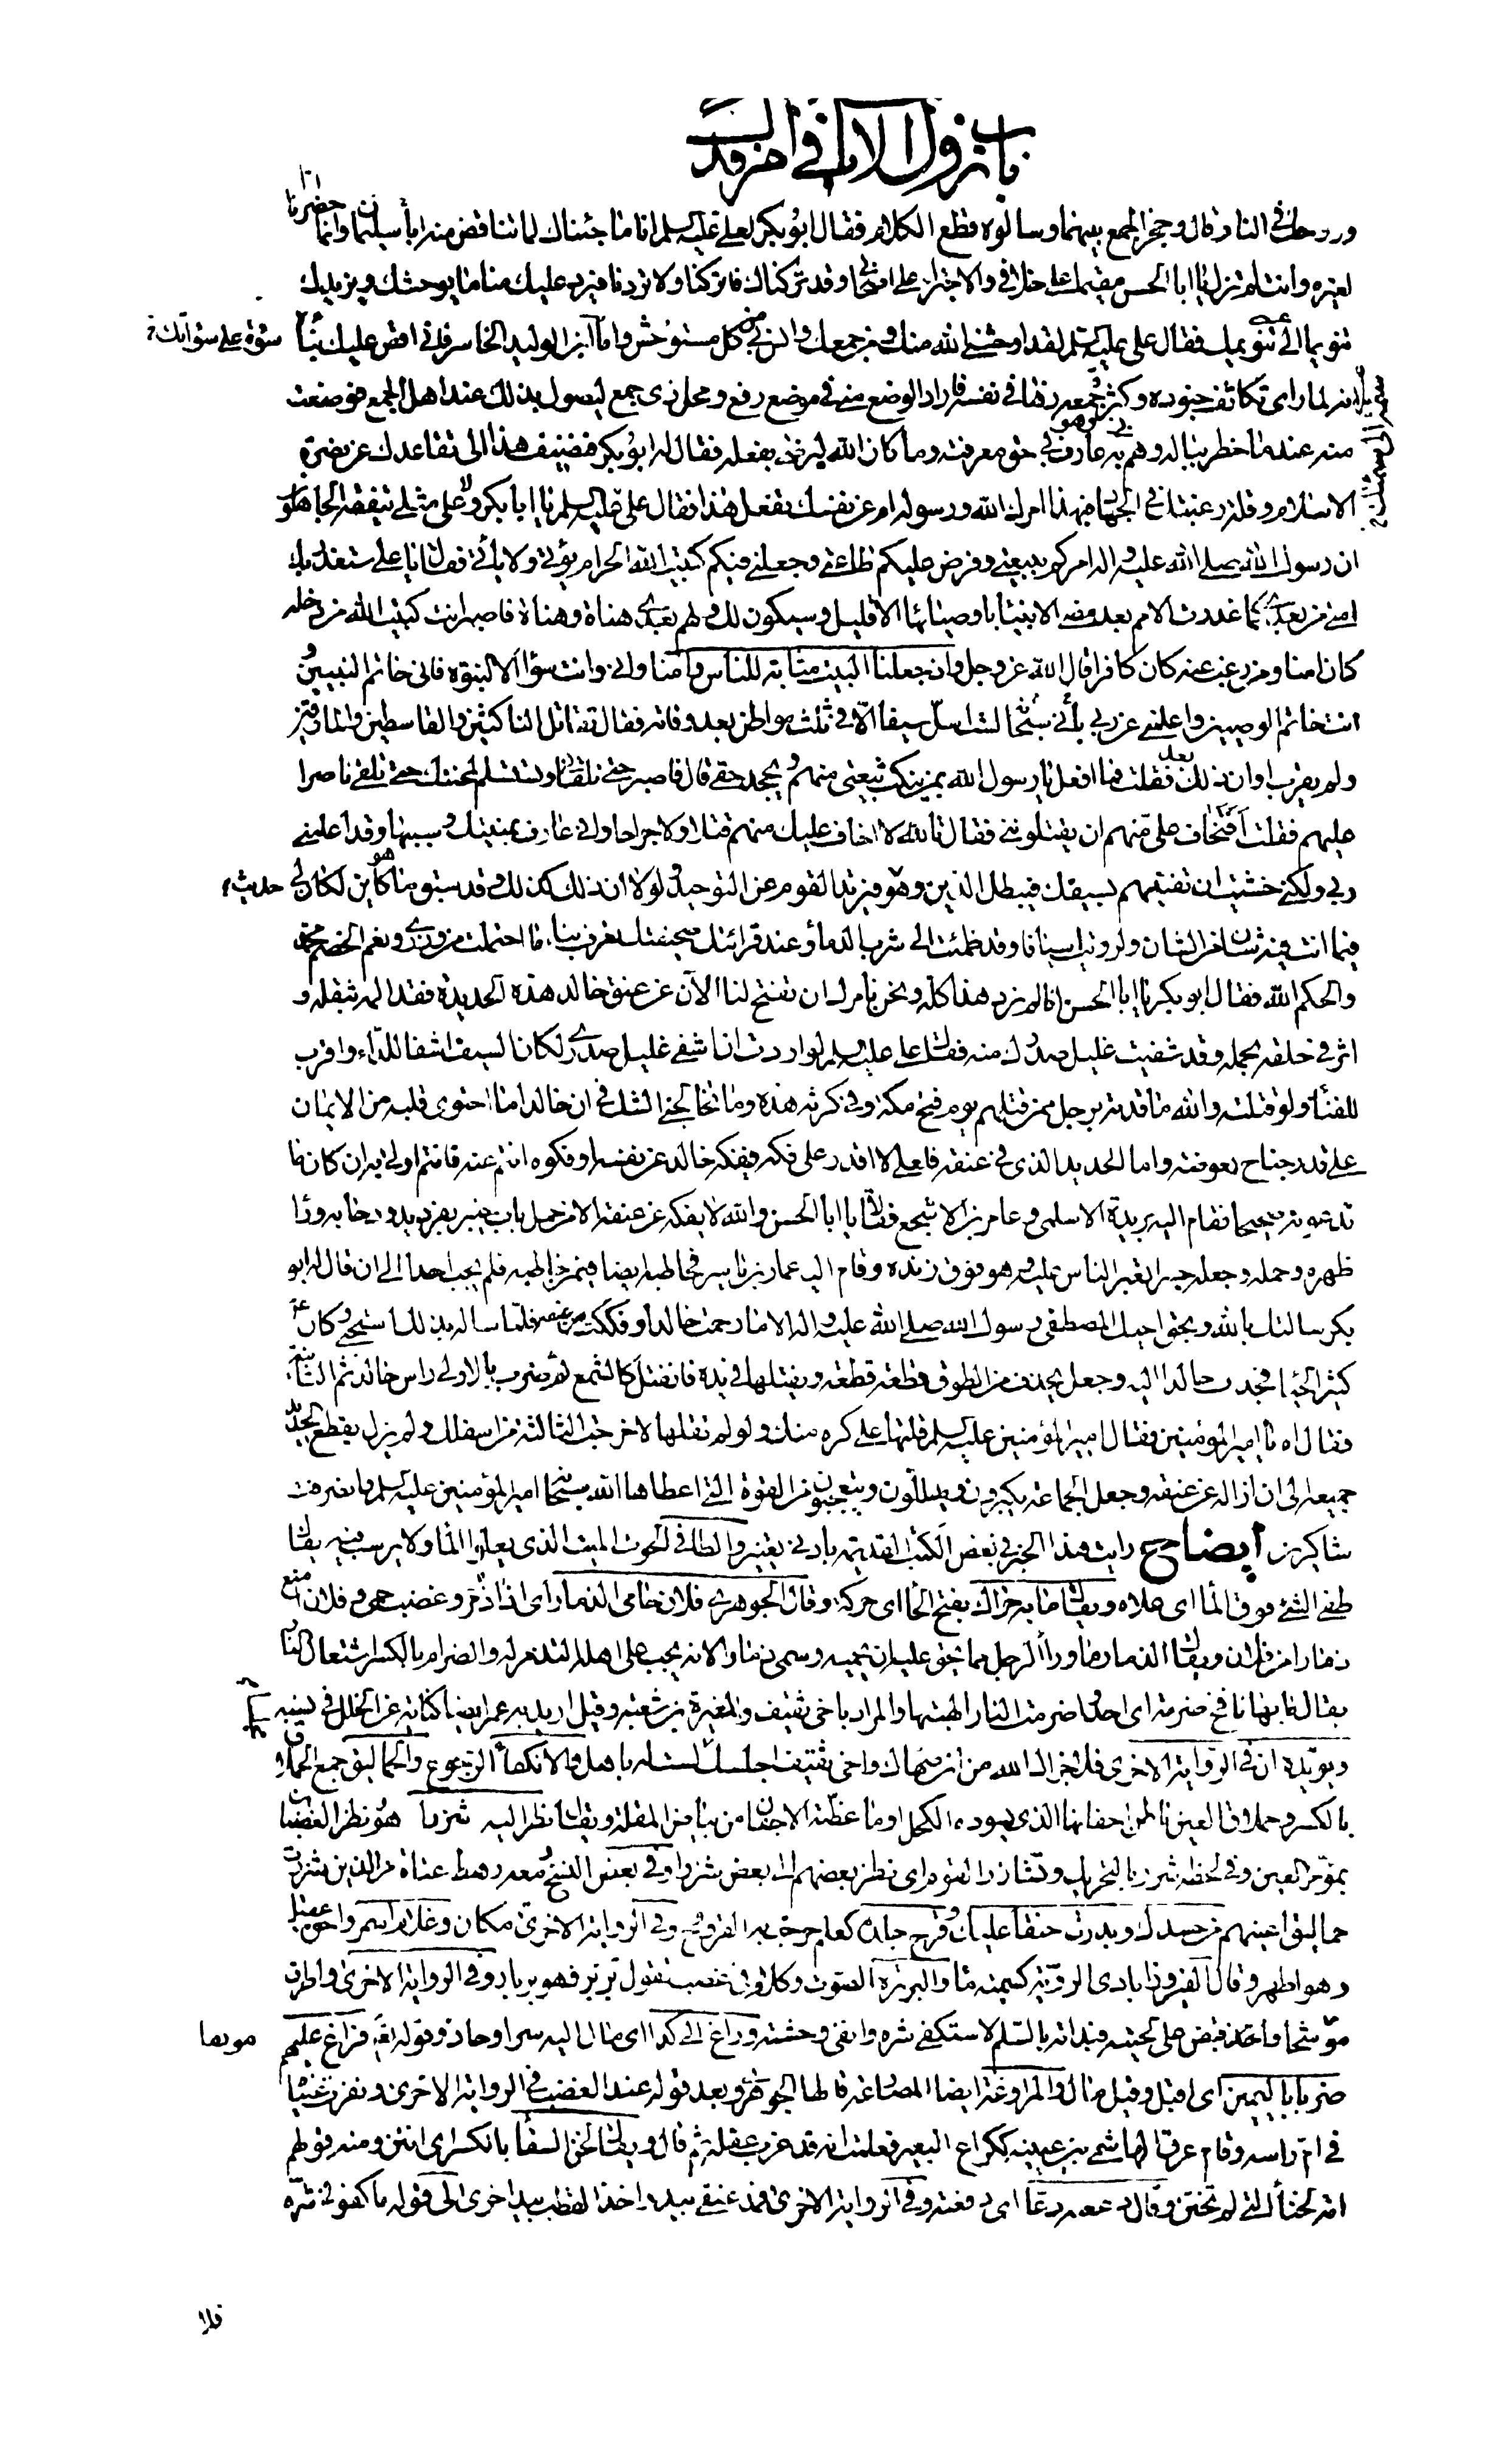 باب نزول الآيات في امر فدك
وروحك في النار قال وحجز الجمع بينهما وسالوه قطع الكلام فقال ابو بكر لعلي عليه السلم انا ما جئناك لما تناقض منه ابا سليمان وانما حضرنا
لغيره وانت لم تزل يا ابا الحسن مقيما على خلافي والاجتراء على اصحابي وقد تركناك فاتركنا ولا تردنا فيرد عليك منا ما يوحشك ويزيدك
تنويما الى تنويمك فقال علي عليه السلم لقد اوحشني الله منك ومن جمعك وانس بي كل مستوحش واما ابن الوليد الخاسر فاني اقص عليك نبأه
سوءة على سوأتك
انه لما راى تكاثف جنوده وكثرة جمعه زها في نفسه فاراد الوضع مني في موضع رفع ومحل ذي جمع ليصول بذلك عند اهل الجمع فوضعت
منه عندما خطر بباله وهم به وهو عارف بي حق معرفته وما كان الله ليرضى بفعله فقال له ابو بكر فنضيف هذا الى تقاعدك عن نصرة
الاسلام وقلة رغبتك في الجهاد فبهذا امرك الله ورسوله ام عن نفسك تفعل هذا فقال علي عليه السلم يا ابا بكر وعلى مثلي يتفقه الجاهلون
ان رسول الله صلى الله عليه واله امركم ببيعتي وفرض عليكم طاعتي وجعلني فيكم كبيت الله الحرام يؤتى ولا يأتي فقال يا علي ستغدر بك
امتي من بعدي كما غدرت الامم بعد مضي الانبيا باوصيائها الا قليل وسيكون لك ولهم بعدي هناة وهناة فاصبر انت كبيت الله من دخله
كان امنا ومن رغب عنه كان كافرا قال الله عز وجل واذ جعلنا البيت مثابة للناس وامنا واني وانت سوا الا النبوة فاني خاتم النبيين و
انت خاتم الوصيين واعلمني عن ربي بأني لست اسل سيفا الا في ثلث مواطن بعد وفاته فقال تقاتل الناكثين والقاسطين والمارقين
ولم يقرب اوان ذلك بعد فقلت فما افعل يا رسول الله بمن ينكث بيعتي منهم ويجحد حقي قال فاصبر حتى تلقاني وتستسلم لمحنتك حتى تلقى ناصرا
عليهم فقلت افتخاف علي منهم ان يقتلونني فقال تالله لا اخاف عليك منهم قتلا ولا جراحا واني عارف بمنيتك وسببها وقد اعلمني
ربي ولكني خشيت ان تفنيهم بسيفك فيبطل الدين وهو حديث فيرتد القوم عن التوحيد ولولا ان ذلك كذلك وقد سبق ما هو كاين لكان لي
فيما انت فيه شان من الشان ولرويت اسيافا وقد ظمئت الى شرب الدما وعند قرائتك صحيفتك تعرف نبأ ما احتملت من وزري ونعم الخصم محمد
والحكم الله فقال ابو بكر يا ابا الحسن انا لم نرد هذا كله ونحن نامرك ان تفتح لنا الآن عن عنق خالد هذه الحديدة فقد المه بثقله و
اثر في حلقه بحمله وقد شفيت غليل صدرك منه فقال علي عليه السلم لو اردت ان اشفي غليل صدري لكان السيف اشفا للداء واقرب
للفنا ولو قتلته والله ما قدته برجل ممن قتلهم يوم فتح مكة وفي كرته هذه وما يخالجني الشك في ان خالدا ما احتوى قلبه من الايمان
على قدر جناح بعوضة واما الحديد الذي في عنقه فلعلي لا اقدر على فكه فيفكه خالد عن نفسه او فكوه انتم عنه فانتم اولى به ان كان ما
تدعونه صحيحا فقام اليه بريدة الاسلمي وعامر بن الاشجع فقالا يا ابا الحسن والله لا يفكه عن عنقه الا من حمل باب خيبر بفرد يد ودحا به ورا
ظهره وحمله وجعله جسرا تعبر الناس عليه وهو فوق زنده وقام اليه عمار بن ياسر فخاطبه ايضا فيمن خاطبه فلم يجب احدا الى ان قال له ابو
بكر سالتك بالله وبحق اخيك المصطفى رسول الله صلى الله عليه واله الا ما رحمت خالدا وفككته من عنقه فلما ساله بذلك استحيى وكان ع
كثير الحيا فجذب خالدا اليه وجعل يجذف من الطوق قطعة قطعة ويفتلها في يده فانفتل كالشمع ثم ضرب بالاولى راس خالد ثم الثانية
فقال اه يا امير المؤمنين فقال امير المؤمنين عليه السلم قلتها على كره منك ولو لم تقلها لاخرجت الثالثة من اسفلك ولم يزل يقطع الحديد
جميعه الى ان ازاله عن عنقه وجعل الجماعة يكبرون ويهللون ويتعجبون من القوة التي اعطاها الله سبحانه امير المؤمنين عليه السلم وانصرفت
شاكرين ايضاح رايت هذا الخبر في بعض الكتب القديمة بادنى تغيير والطافي الحوت الميت الذي يعلو الما ولا يرسب فيه يقال
طفى الشئ فوق الما اي علاه ويقال ما به حراك بفتح الحا اي حركة وقال الجوهري فلان حامي الذمار اي اذا ذمر وغضب حمى وفلان امنع
ذمارا من فلان ويقال الذمار ما ورا الرجل مما يحق عليه ان يحميه وسمى ذمارا لانه يجب على اهله التذمر له والضرام بالكسر اشتعال النار
يقال ما بها نافخ ضرمة اي احد واضرمت النار الهبتها والمراد باخي ثقيف والمغيرة بن شعبة وقيل اريد به عمر ايضا كناية عن الخلل في نسبه
ويؤيده ان في الرواية الاخرى فلا جزاك الله من ابن صهاك واخي ثقيف اجلسك لست له باهل والانكفأ الرجوع والحماليق جمع الحملاق
بالكسر وحملاق العين باطن اجفانها الذي يسوده الكحل او ما غطته الاجفان من بياض المقلة ويقال نظر اليه شزرا هو نظر الغضبان
بمؤخر العين وفي لحظه شزر بالتحريك وتشازر القوم اي نظر بعضهم الى بعض شزرا وفي بعض النسخ ومعه رهط عتاة من الذين شزرت
حماليق اعينهم من حسدك وبدرت حنقا عليك وقرح جباه كعام جرحته القروح وفي الرواية الاخرى مكان وغلام اسمر واخو عقيل
وهو اظهر وقال الفيروزابادي الروية كسمية ما والبربرة الصوت وكلام في غضب تقول بربر فهو بربار وفي الرواية الاخرى واطرق
موشحا واخذ قبض على لحيته فبداته بالسلم لاستكفي شره وانفي وحشته وراغ الى كذا اي مال اليه سرا وحاد وقوله تعالى فراغ عليهم
ضربا باليمين اي اقبل وقيل مال والمراوغة ايضا المصارعة قالها الجوهري وبعد قوله عند الغضب في الرواية الاخرى ونفرت عيناه
في ام راسه وقام عرق الهاشمي بين عينيه ككراع البعير فعلمت انه قد عزب عقله ثم قال ويقال لخن السقأ بالكسر اي انتن ومنه قولهم
امة لخنا التي لم تختن وقال دعه دعا اي دفعته وفي الرواية الاخرى فمد عنقي بيد واخذ القطب بيد اخرى الى قوله ما كفوني شره
فلا